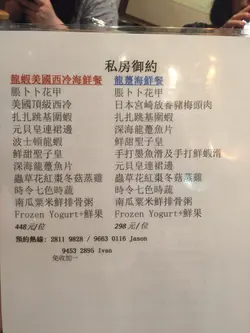 私房御約
龍蝦美國西冷海鮮餐
脹卜卜花甲
美國頂級西冷
扎扎跳基圍蝦
元貝皇連裙邊
波士頓龍蝦
鮮甜聖子皇
深海龍躉魚片
蟲草花紅棗冬菇蒸雞
時令七色時蔬
南瓜粟米鮮排骨粥
Frozen Yogurt+鮮果
448元/位
龍躉海鮮餐
脹卜卜花甲
日本宮崎放養豬梅頭肉
扎扎跳基圍蝦
深海龍躉魚片
鮮甜聖子皇
手打墨魚滑及手打鮮蝦滑
元貝皇連裙邊
蟲草花紅棗冬菇蒸雞
時令七色時蔬
南瓜粟米鮮排骨粥
Frozen Yogurt+鮮果
298元/位
預約熱線: 2811 9828 / 9663 0116 Jason
9453 2895 Ivan
免收加一